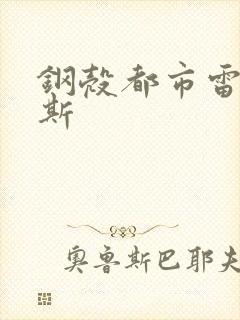 鋼殼都市雷
斯
奧魯斯巴耶夫